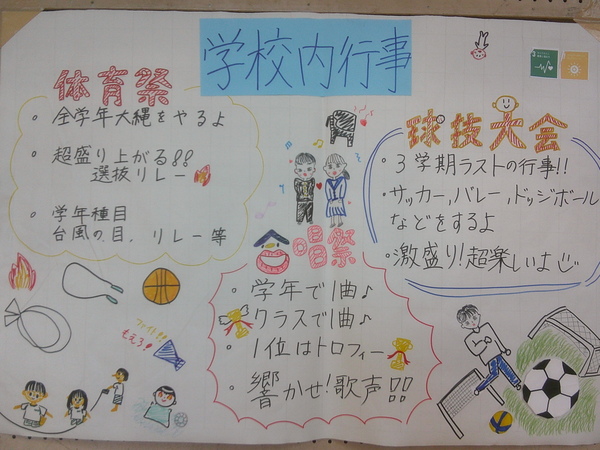 学校内行事
体育祭
・全学年大縄をやるよ
・超盛り上がる!!
選抜リレー
・学年種目
台風の目、リレー等
ファイト!!
もえろ!
合唱祭
・学年で1曲♪
・クラスで1曲♪
・1位はトロフィー
・響かせ!歌声!!
球技大会
・3学期ラストの行事!!
・サッカー,バレー,ドッジボール
などをするよ
・激盛り!超楽しいよ